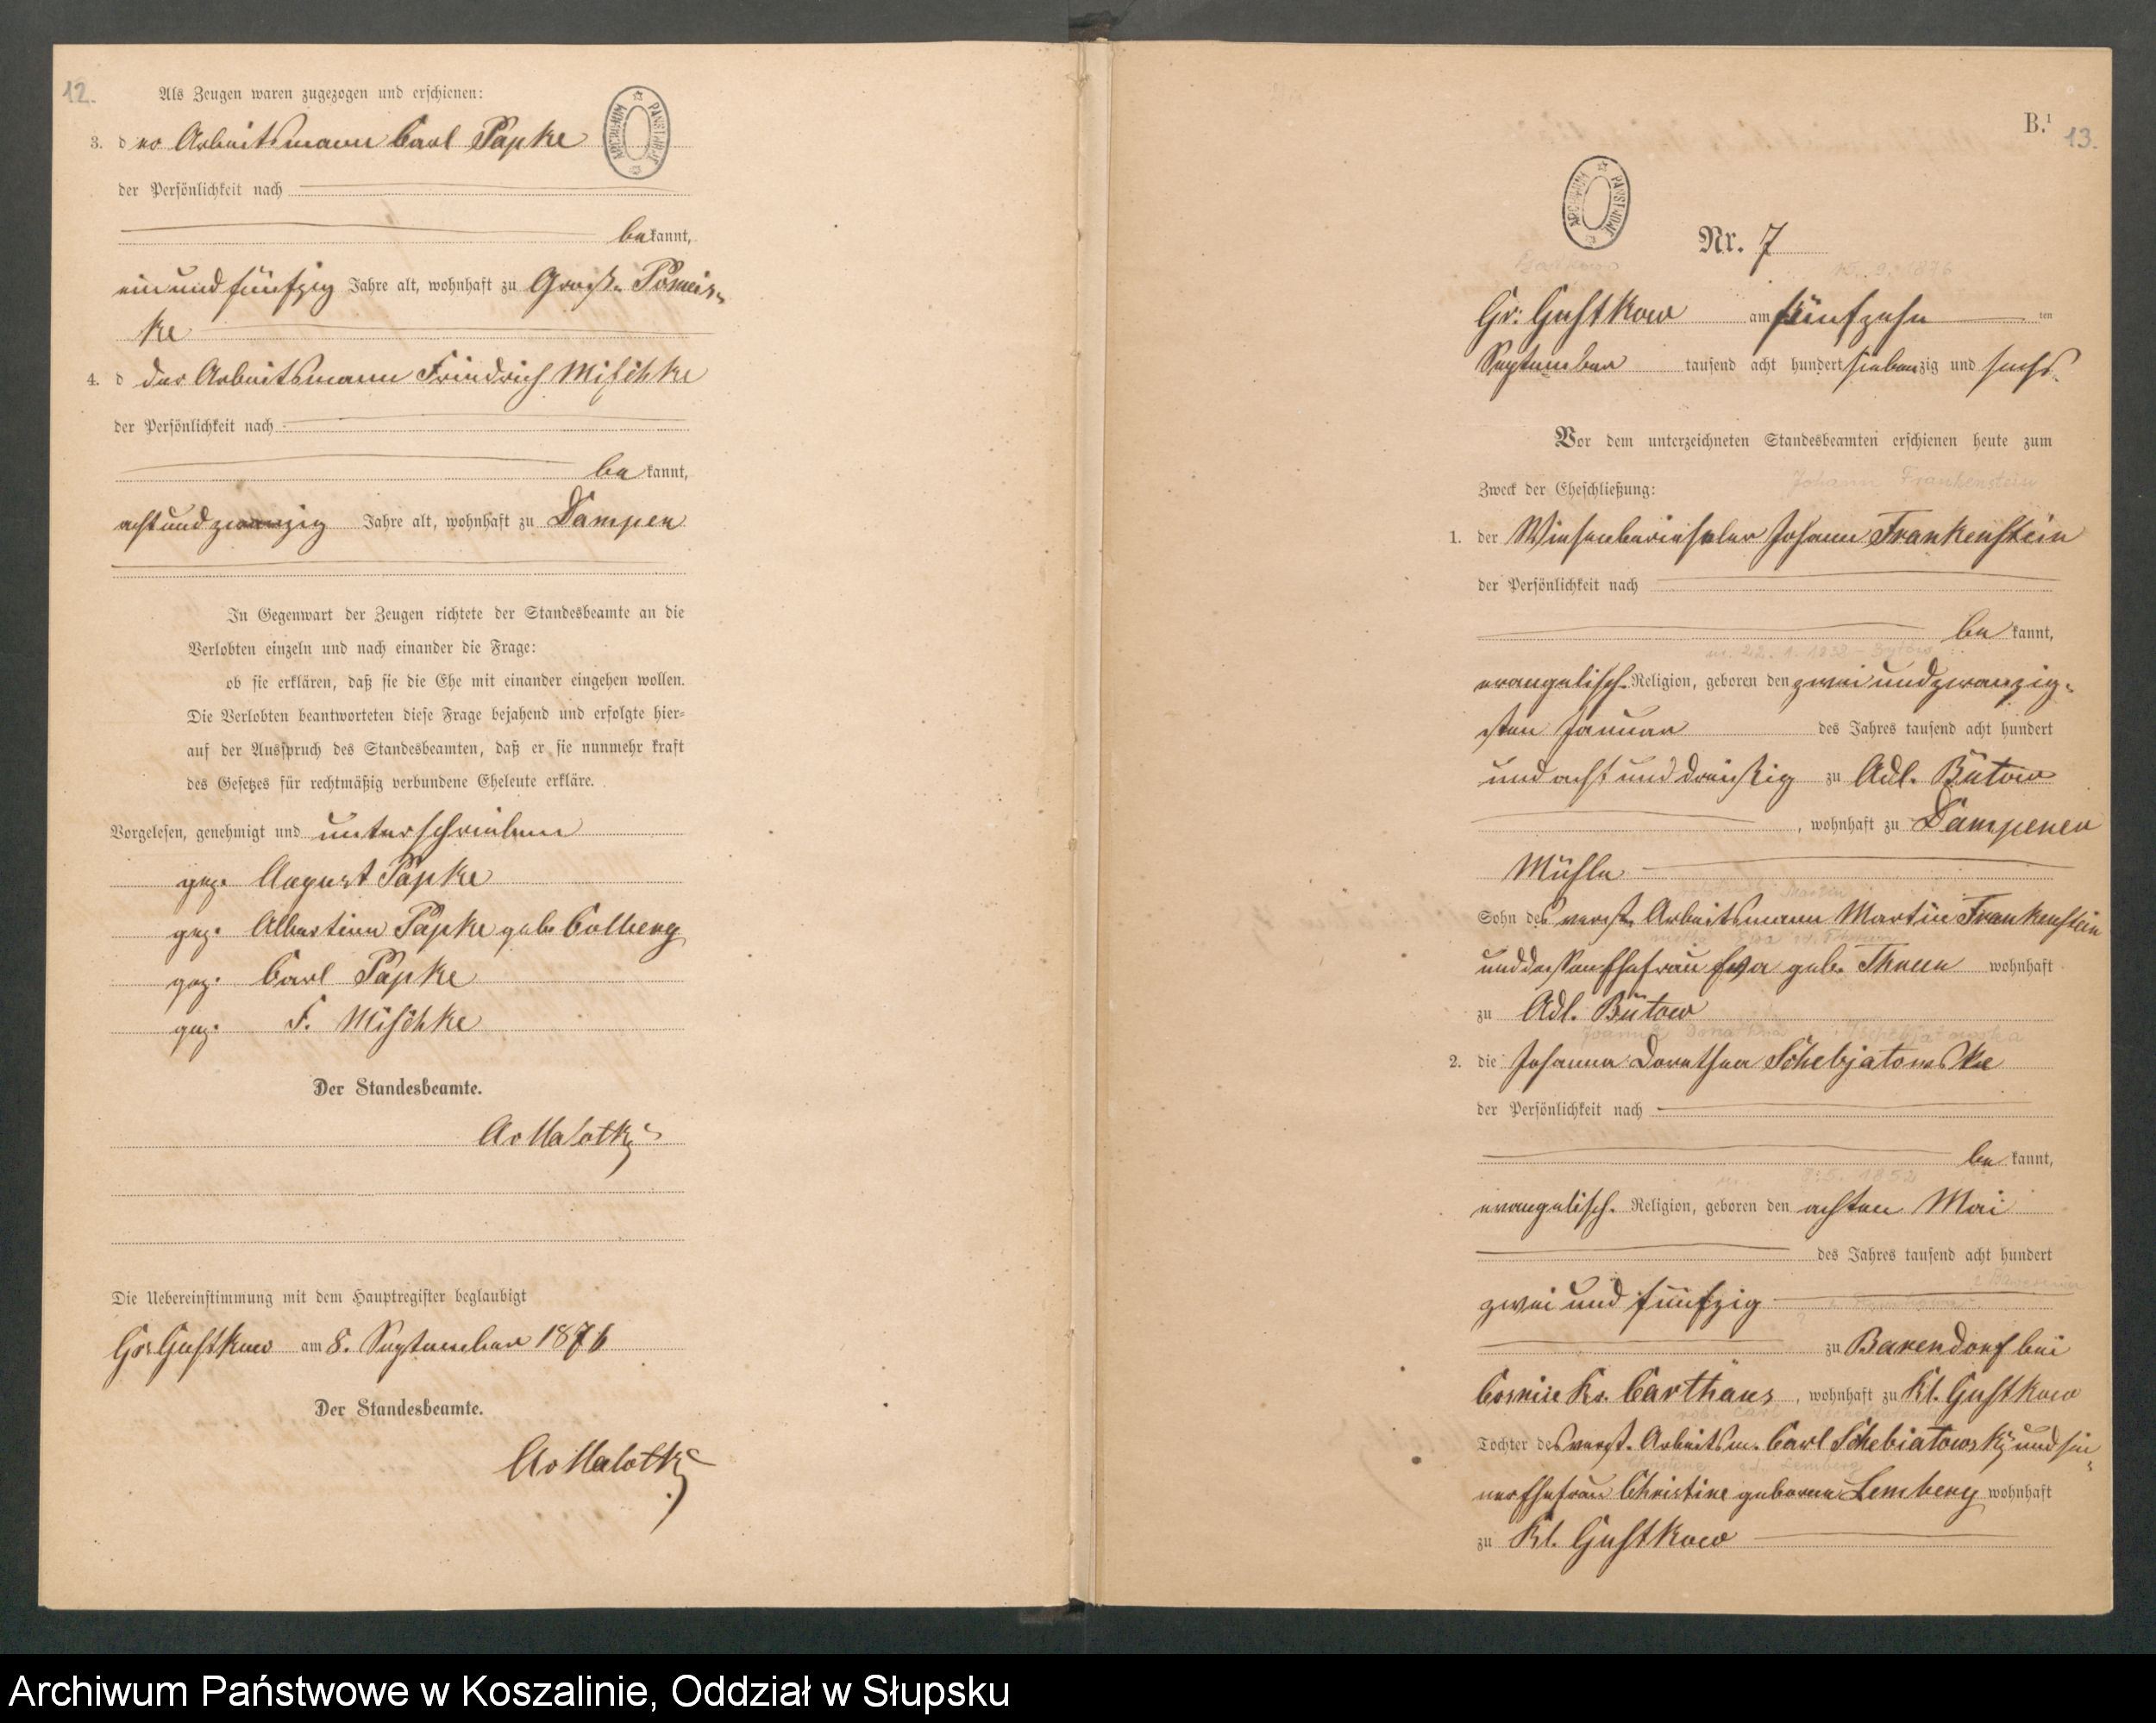 12.
Als Zeugen waren zugezogen und erschienen:
3. der Arbeitsmann Carl Papke
ARCHIWUM PAŃSTWOWE
der Persönlichkeit nach
bekannt,
ein und fünfzig Jahre alt, wohnhaft zu Groß-Pomeis-
ke
4. d der Arbeitsmann Friedrich Mischke
der Persönlichkeit nach
bekannt,
acht und zwanzig Jahre alt, wohnhaft zu Dampen
In Gegenwart der Zeugen richtete der Standesbeamte an die
Verlobten einzeln und nach einander die Frage:
ob sie erklären, daß sie die Ehe mit einander eingehen wollen.
Die Verlobten beantworteten diese Frage bejahend und erfolgte hier-
auf der Ausspruch des Standesbeamten, daß er sie nunmehr kraft
des Gesetzes für rechtmäßig verbundene Eheleute erkläre.
Vorgelesen, genehmigt und unterschrieben
gez. August Papke
gez. Albertine Papke geb. Colberg
gez. Carl Papke
gez. F. Mischke
Der Standesbeamte.
Die Uebereinstimmung mit dem Hauptregister beglaubigt
Gr. Gustkow am 8. September 1876
Der Standesbeamte.
B.¹
13.
ARCHIWUM PAŃSTWOWE
Nr. 7
15. 9. 1876
Gr. Gustkow am fünfzehn ten
September tausend acht hundert siebenzig und sechs.
Vor dem unterzeichneten Standesbeamten erschienen heute zum
Johann Frankenstein
Zweck der Eheschließung:
1. der Wiesenberieseler Johann Frankenstein
der Persönlichkeit nach
bekannt,
evangelisch. Religion, geboren den zwei und zwanzig-
sten Januar des Jahres tausend acht hundert
und acht und dreißig zu Adl. Bütow
, wohnhaft zu Dampener
Mühle
Sohn des verst. Arbeitsmann Martin Frankenstein
und dessen Ehefrau Eva geb. wohnhaft
zu Adl. Bütow
2. die Johanna Dorothea Schebjatowske
der Persönlichkeit nach
bekannt,
8. 5. 1852
evangelisch. Religion, geboren den achten Mai
des Jahres tausend acht hundert
zwei und fünfzig
zu Barendorf bei
Kr. Carthaus, wohnhaft zu Kl. Gustkow
Tochter des verst. Arbeitsm. Carl Schebiatowsky und sei-
ner Ehefrau Christine geborene Lemberg wohnhaft
zu Kl. Gustkow
Archiwum Państwowe w Koszalinie, Oddział w Słupsku